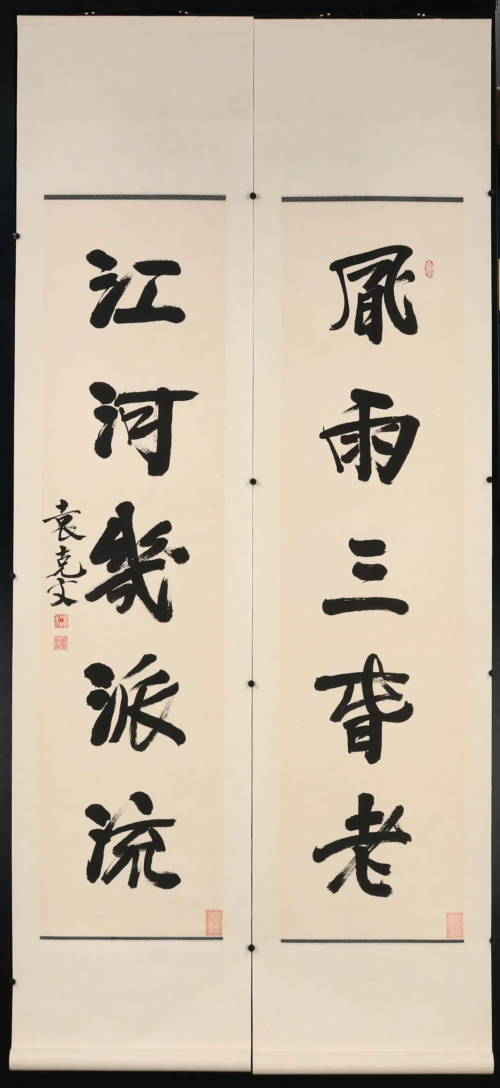 凮雨三旾老
江河幾派流
袁克文